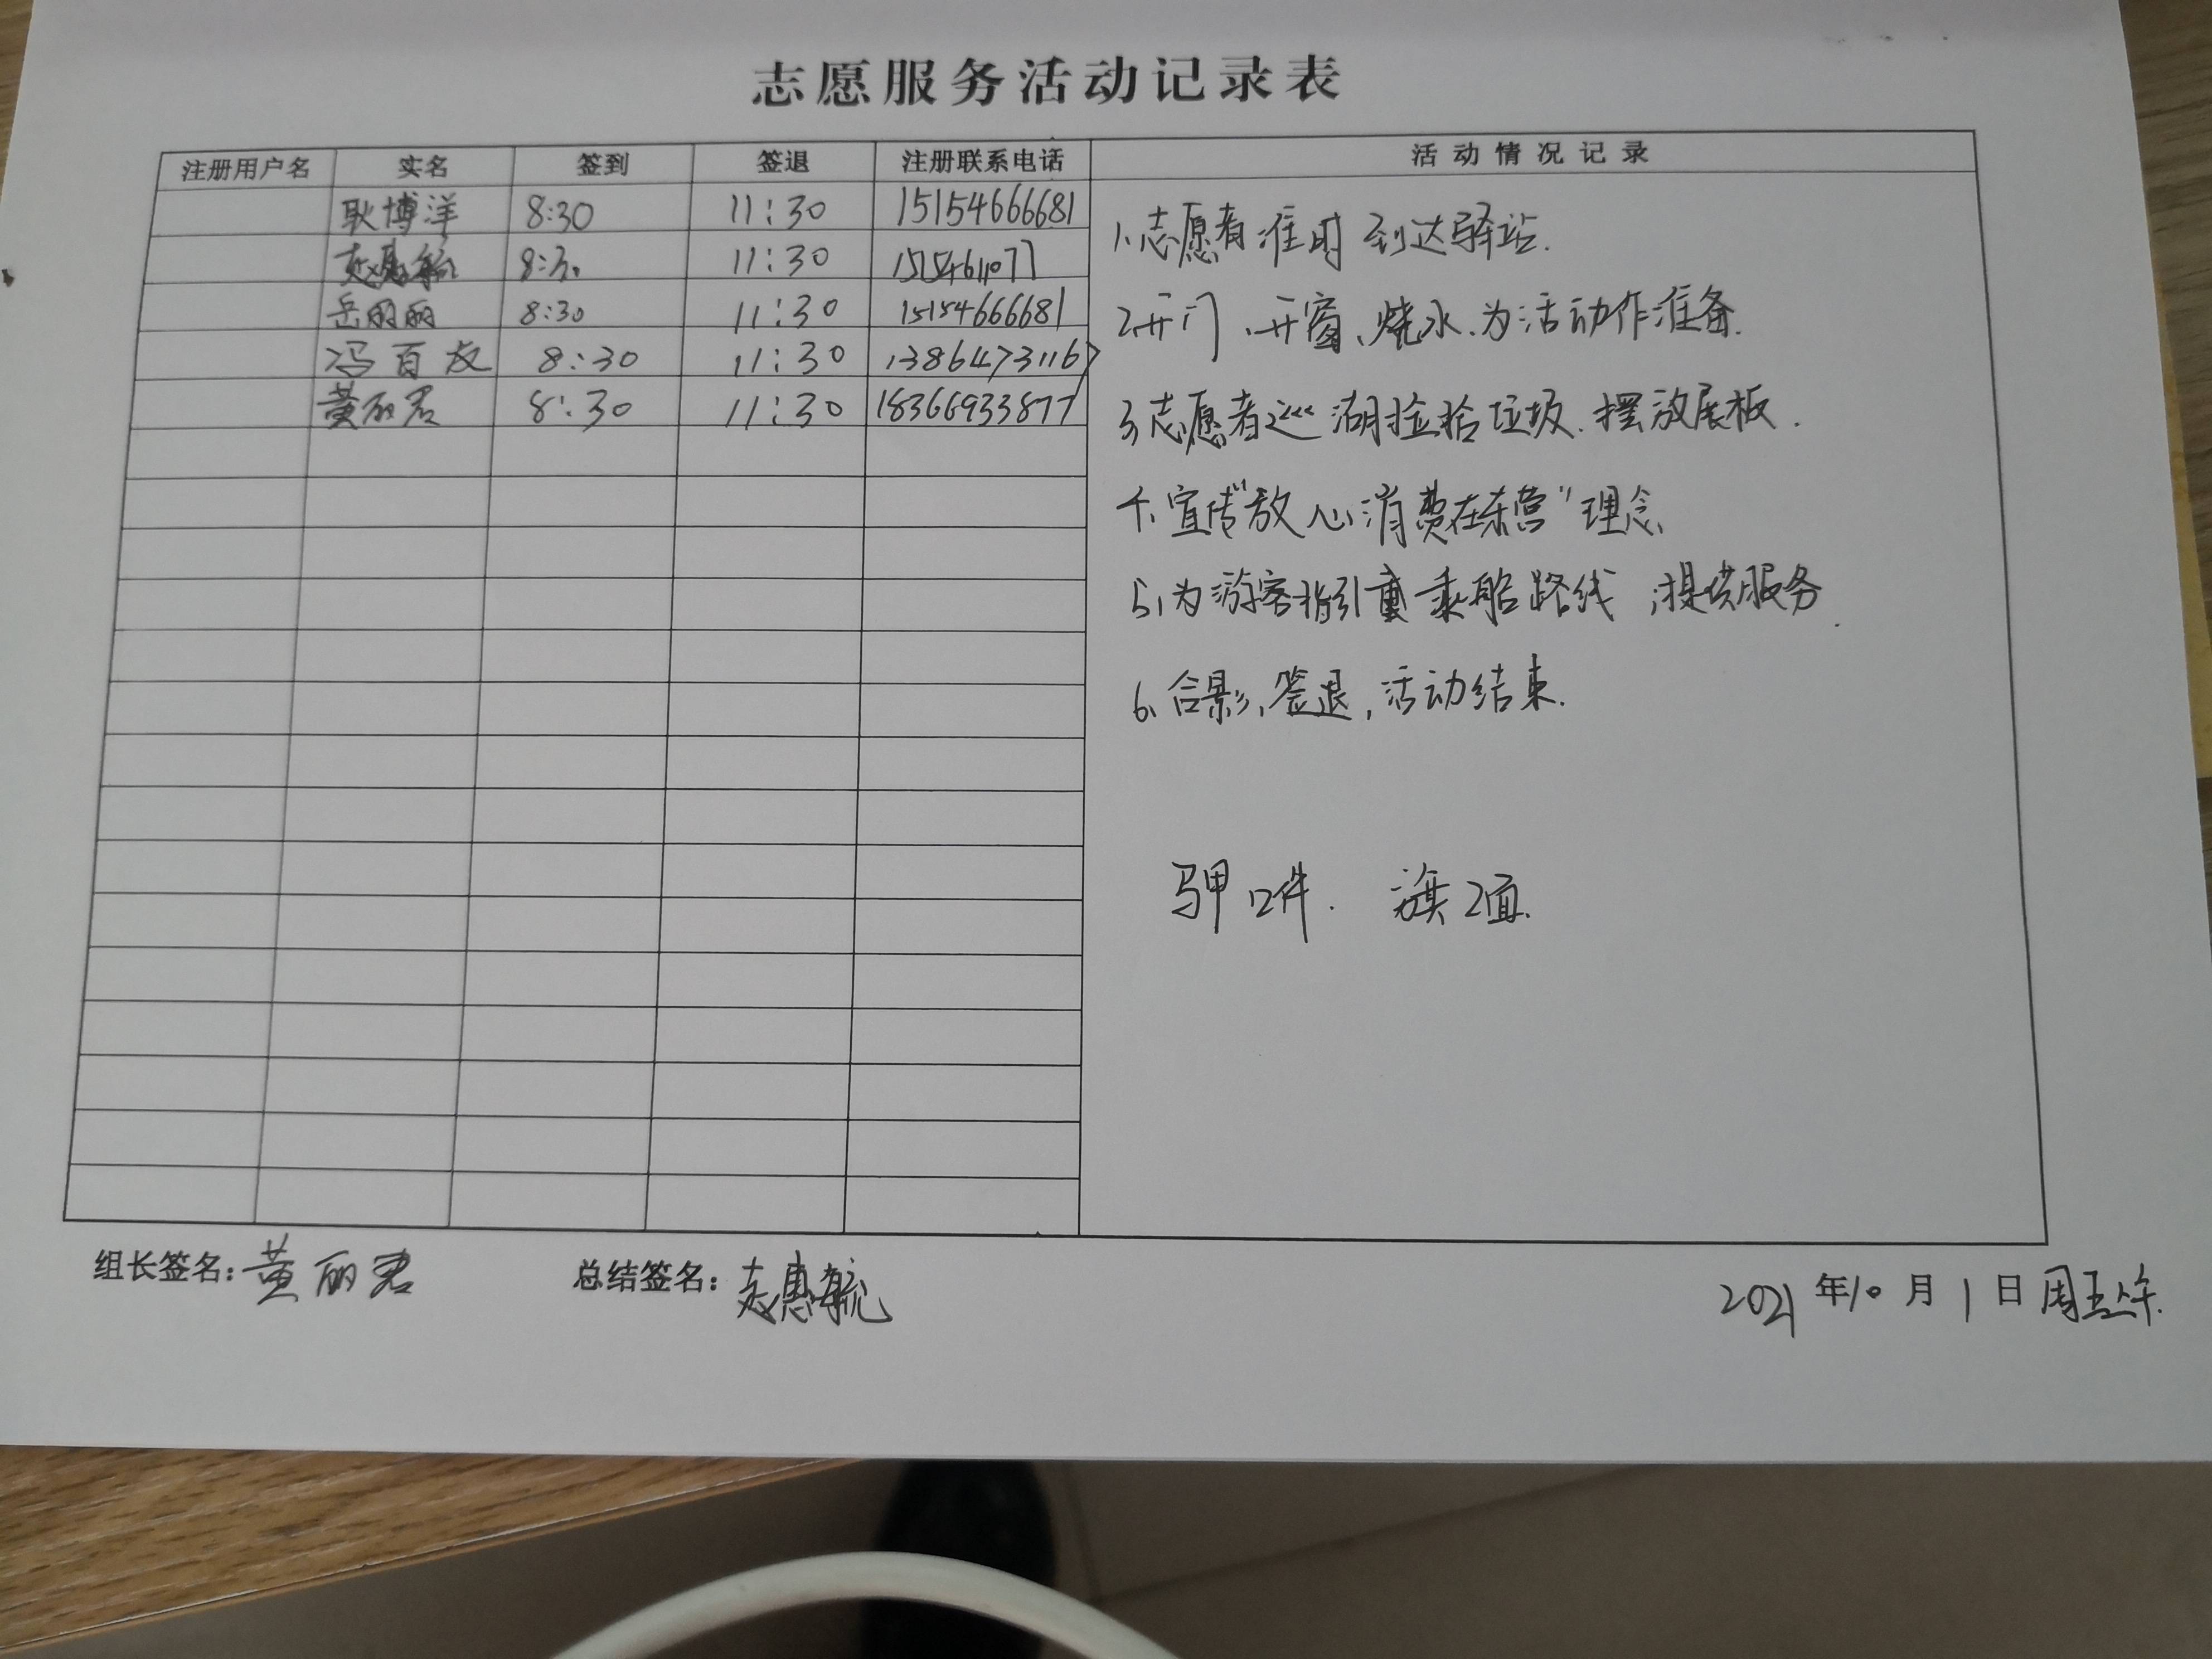 志愿服务活动记录表
注册用户名 实名 签到 签退 注册联系电话 活动情况记录
耿博洋 8:30 11:30 15154666681
赵惠毓 8:30 11:30
岳丽丽 8:30 11:30 15154666681
冯百友 8:30 11:30 13864731167
黄丽君 8:30 11:30 18366933877
1、志愿者准时到达驿站.
2、开门、开窗、烧水、为活动作准备.
3、志愿者巡湖捡拾垃圾.摆放展板.
4、宣传“放心消费在东营”理念、
5、为游客指引乘船路线,提供服务.
6、合影、签退,活动结束.
马甲 件. 旗2面.
组长签名:黄丽君 总结签名:赵惠毓 2021年10月1日周五上午.